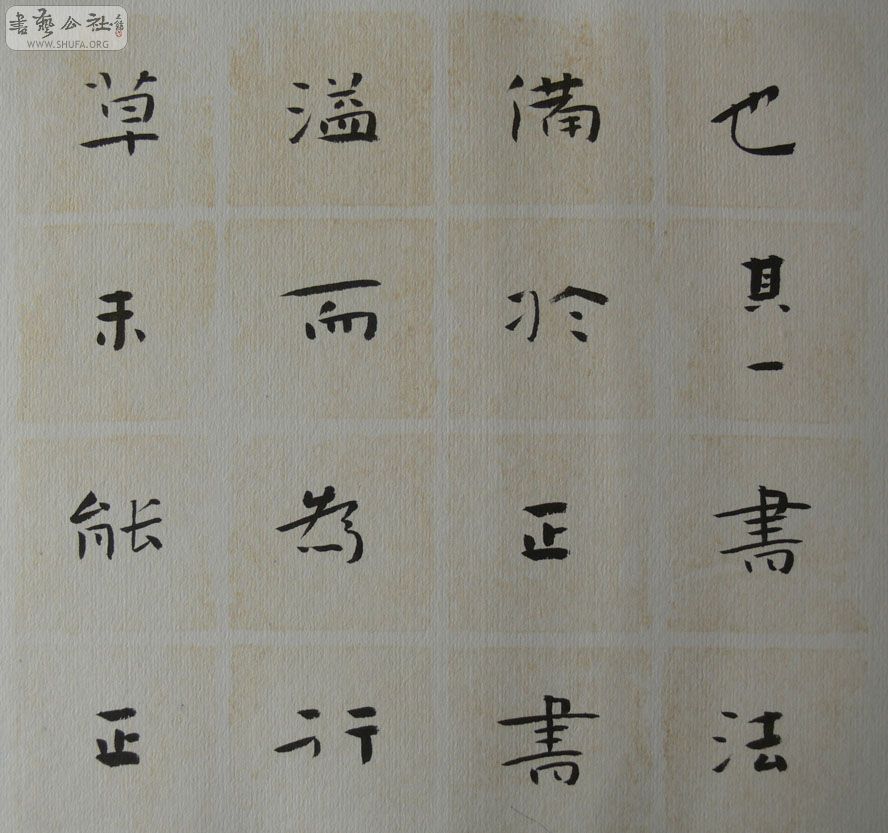 也其一書法
備於正書
溢而為行
草未能正
書藝公社
WWW.SHUFA.ORG